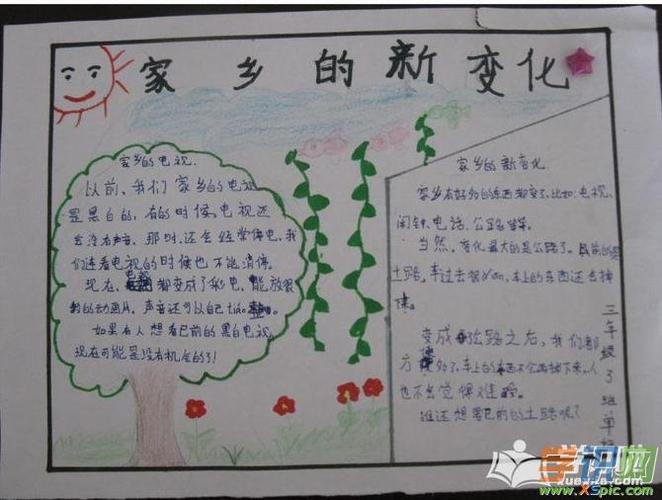 家乡的新变化
家乡的电视
以前,我们家乡的电视
是黑白的,有的时候,电视还
会没有声音,那时,还会经常停电,我
们连看电视的时候也不能消停。
现在,电视都变成了彩电,能放很
的动画片,声音还可以自己tiáo整。
如果有人想看已前的黑白电视,
现在可能是没有机会的了!
家乡的新变化
家乡有好多的东西都变了,比如:电视、
闹钟、电话、公路等等。
当然,变化最大的是公路了。以前的是
土路,车过去
车上的东西还会掉
变成公路之后,我们都
方便好了,车上的东西不会再掉下来,人
也不会觉得难
谁还想要已前的土路呢?
三年级3班单
学识网
www.XSpic.com